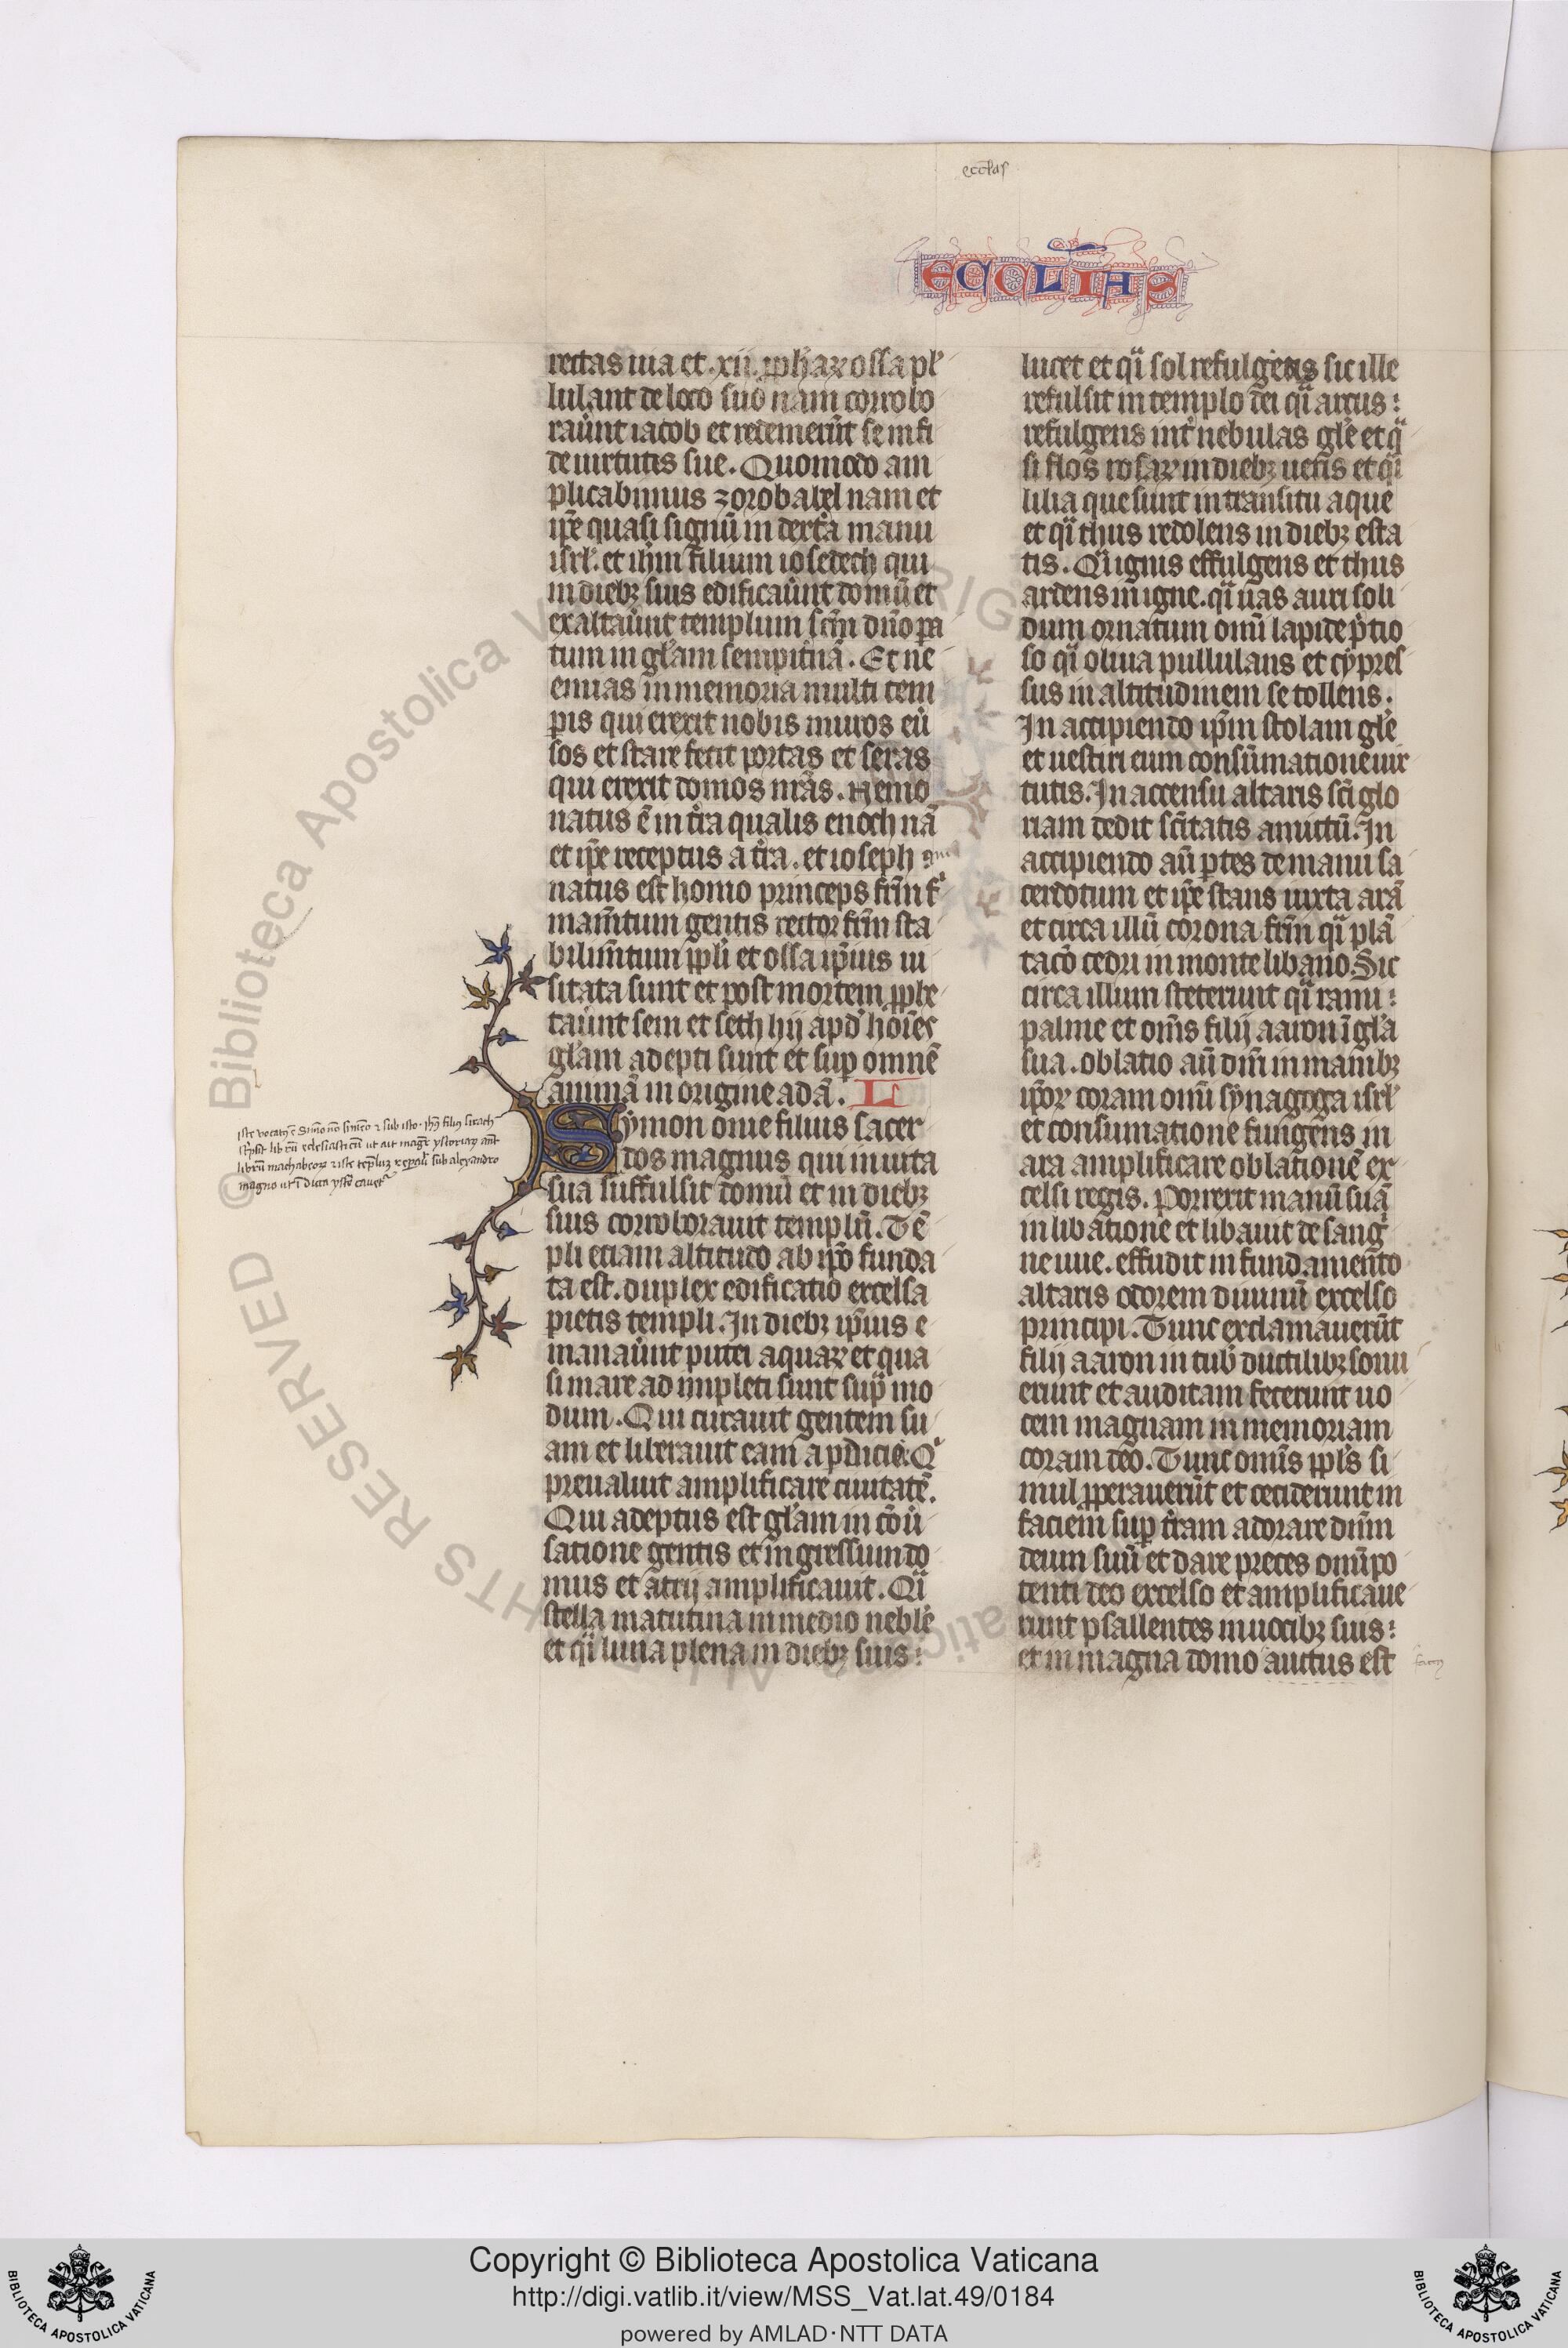 eccl̄as
ECCLIAS
rectas uia et .xii. ꝓph̓aꝝ ossa pl̓
lulant de loco suo nam corrobo
raūnt iacob et redemerūt se in fi
de uirtutis sue. Quomodo am
plicabimus zorobabel nam et
ip̄e quasi signū in dext̓a manu
isrl̓. et ih̄m filium iosedech qui
in diebꝫ suis edificaūnt domū et
exaltaūnt templum sc̄m dn̄o pa
tum in gl̓am sempit̓nā. Et ne
emias in memoria multi tem
pis qui erexit nobis muros eū
sos et stare fecit portas et seras
qui erexit domos nr̄as. Nemo
natus ē in t̓ra qualis enoch nā
et ip̄e receptus a t̓ra. et ioseph
natus est homo princeps fr̄m f̓
mam̄tum gentis rector fr̄m sta
bilim̄tum ppl̓i et ossa ip̄ius ui
sitata sunt et post mortem ꝓphe
taūnt sem et seth hij apd̓ hoīes
gl̓am adepti sunt et suꝑ omnē
animā in origine adā. L
Symon onie filius sacer
dos magnus qui in uita
sua suffulsit domū et in diebꝫ
suis corroborauit templū. Tē
pli etiam altitudo ab ip̄o funda
ta est. duplex edificatio excelsa
pietis templi. In diebꝫ ip̄ius e
manaūnt putei aquaꝝ et qua
si mare adimpleti sunt supͣ mo
dum. Qui curauit gentem su
am et liberauit eam a ꝑdicōe. Qͥ
preualuit amplificare ciuitatē.
Qui adeptus est gl̓am in cōū
satione gentis et ingressum do
mus et atrij amplificauit. Qͣi
stella matutina in medio neble
et qͣi luna plena in diebꝫ suis:
Iste vocatꝰ ē Simō
lucet et qͣi sol refulgens sic ille
refulsit in templo dei qͣi arcus:
refulgens int̓ nebulas gl̓e et qͣ
si flos rosaꝝ in diebꝫ ueris et qͣi
lilia que sunt in transitu aque
et qͣi thus redolens in diebꝫ esta
tis. Qͣi ignis effulgens et thus
ardens in igne. qͣi uas auri soli
dum ornatum om̄i lapide p̄tio
so qͣi oliua pullulans et cypres
sus in altitudinem se tollens.
In accipiendo ip̄m stolam gl̓e
et uestiri eum consūmatione uir
tutis. In accensu altaris sc̄i glo
riam dedit sc̄itatis amictū. In
accipiendo aū ꝑtes de manu sa
cerdotum et ip̄e stans iuxta arā
et circa illū corona fr̄m qͣi plā
tacō cedri in monte libano. Sic
circa illum steterunt qͣi rami:
palme et om̄s filij aaron ī gl̓a
sua. oblatio aū dn̄i in manibꝫ
ip̄oꝝ coram om̄i synagoga isrl̓
et consumatione fungens in
ara amplificare oblationē ex
celsi regis. Porrexit manū suā
in libatione et libauit de sangͥ
ne uue. effudit in fundamen̄to
altaris odorem diuinū excelso
principi. Tunc exclamauerūt
filij aaron in tub̓ ductilibꝫ sonu
erunt et auditam fecerunt uo
cem magnam in memoriam
coram deo. Tunc om̄is ppl̓s si
mul ꝓperauerūt et ceciderunt in
faciem suꝑ t̓ram adorare dn̄m
deum suū et dare preces om̄ipo
tenti deo excelso et amplificaue
runt psallentes in uocibꝫ suis:
et in magna domo auctus est
© Biblioteca Apostolica Vaticana
ALL RIGHTS RESERVED
Copyright © Biblioteca Apostolica Vaticana
http://digi.vatlib.it/view/MSS_Vat.lat.49/0184
powered by AMLAD·NTT DATA
BIBLIOTECA APOSTOLICA VATICANA
BIBLIOTECA APOSTOLICA VATICANA